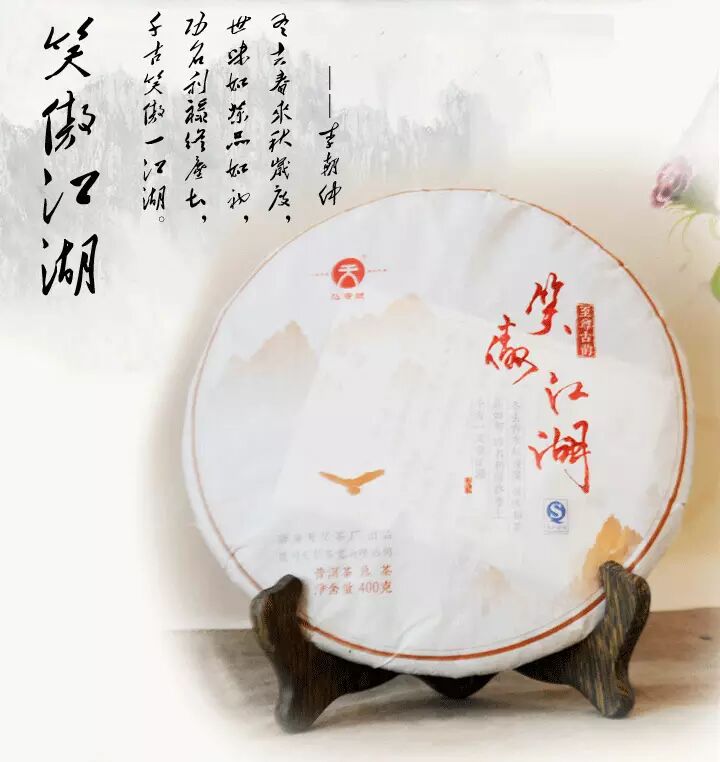 笑傲江湖
冬去春来秋岁度，
世味如茶品如初，
功名利禄终尘土，
千古笑傲一江湖。
——李朝纬
天
笑傲江湖
至尊古韵
普洱茶 熟茶
净含量 400克